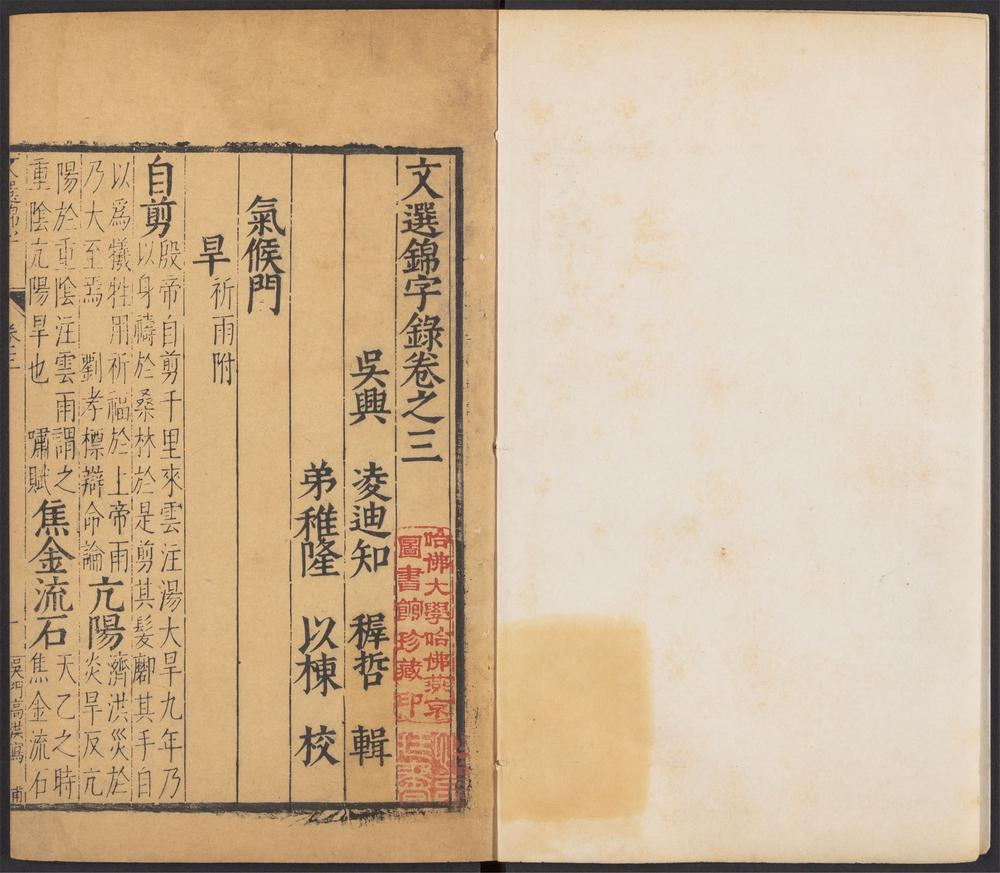 文選錦字錄卷之三
哈佛大學哈佛燕京
圖書館珍藏印
吳興 凌迪知 穉哲 輯
弟稚隆 以棟 校
氣候門
旱 祈雨附
自剪
殷帝自剪千里來雲注湯大旱九年乃
以身禱於桑林於是剪其髮酈其手自
以爲犧牲用祈福於上帝雨
乃大至焉 劉孝標辯命論
亢陽
濟洪災於
炎旱反亢
陽於重陰注雲雨謂之
重陰亢陽旱也 嘯賦
焦金流石
天乙之時
焦金流石
卷三
一
吳門高洪寫
甫